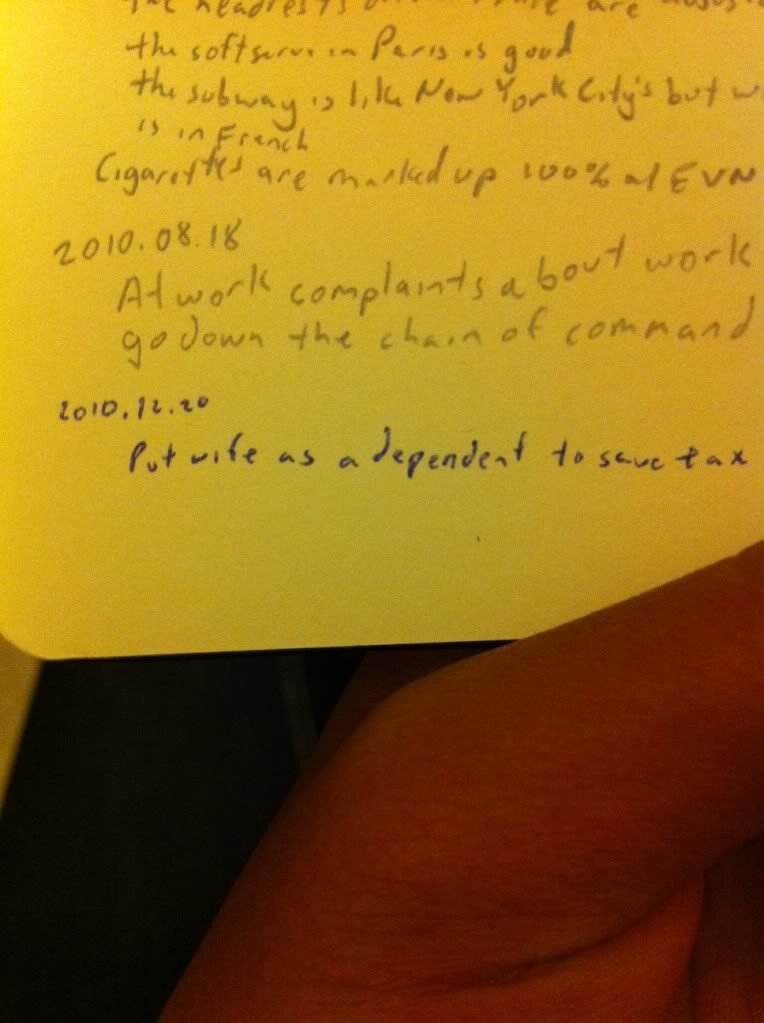 the headrests are
the softserve in Paris is good
the subway is like New York City's but w
is in French
Cigarettes are marked up 100% at EVN
2010.08.18
At work complaints about work
go down the chain of command
2010.12.20
Put wife as a dependent to save tax